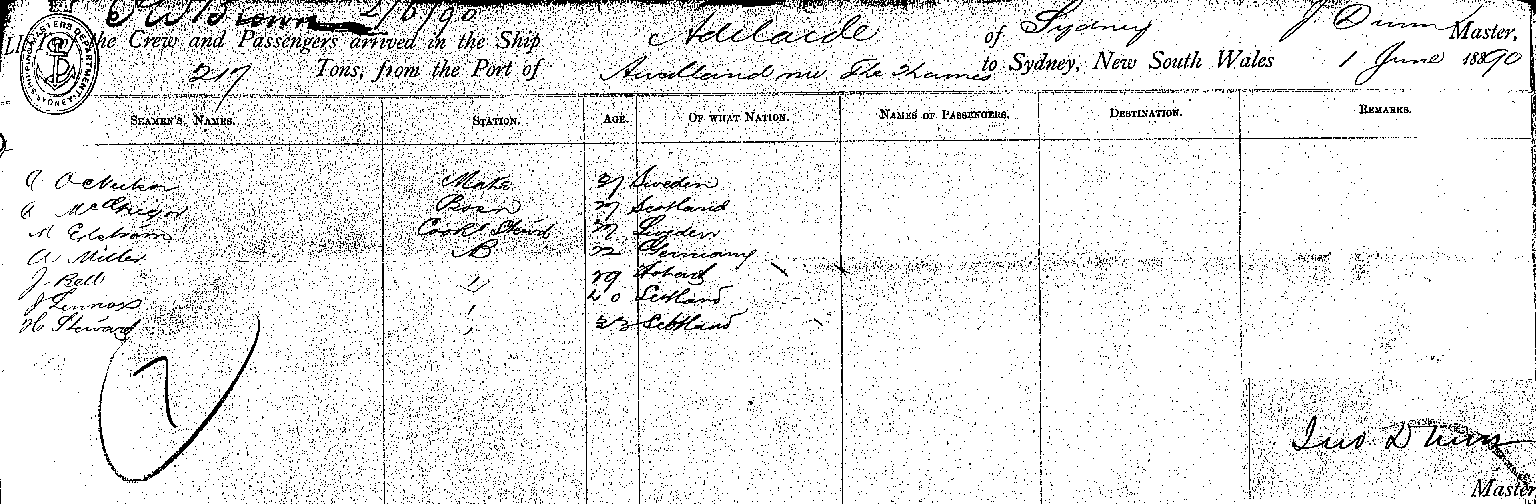 Brown 2/6/90
LIST of the Crew and Passengers arrived in the Ship Adelaide of Sydney J Dunn Master,
217 Tons, from the Port of The Thames to Sydney, New South Wales 1 June 1890
SEAMEN'S NAMES. STATION. AGE. OF WHAT NATION. NAMES OF PASSENGERS. DESTINATION. REMARKS.
Mate Sweden
McGregor Bosn 27 Scotland
M Edstrom Cook & Stewd 27 Sweden
A Miller AB 22 Germany
J. Bell " 29
J Lennox " 20 Scotland
H Steward " 23 Scotland
7
Jno Dunn
Master